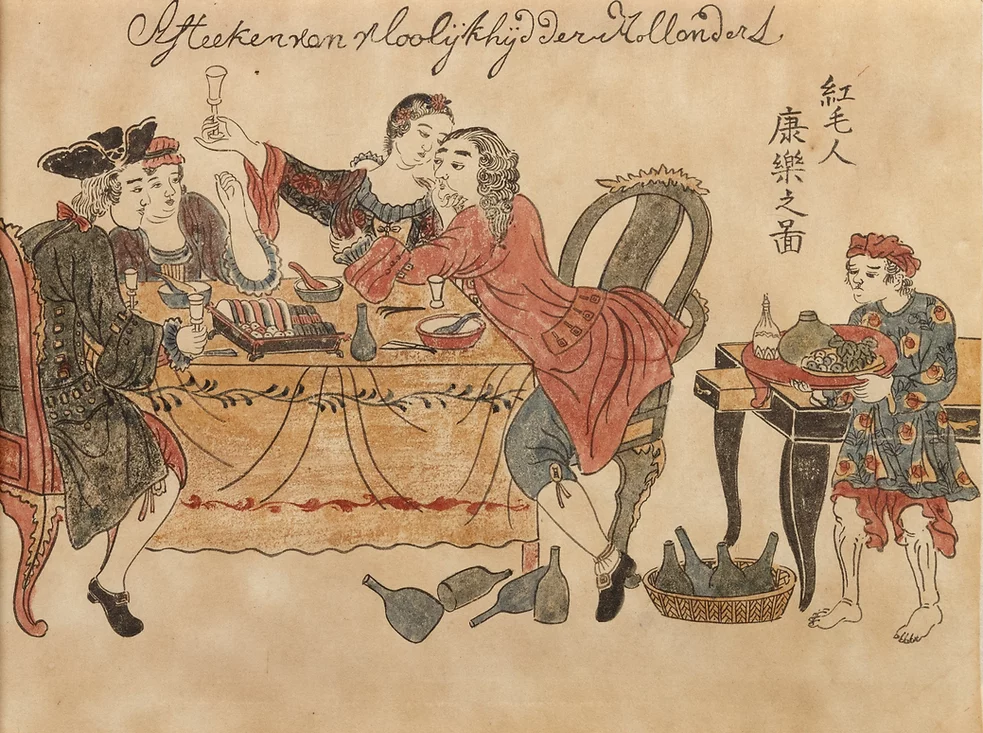 Afteekenvan vloolijkhijd Der Hollanders
紅毛人
康樂之圖